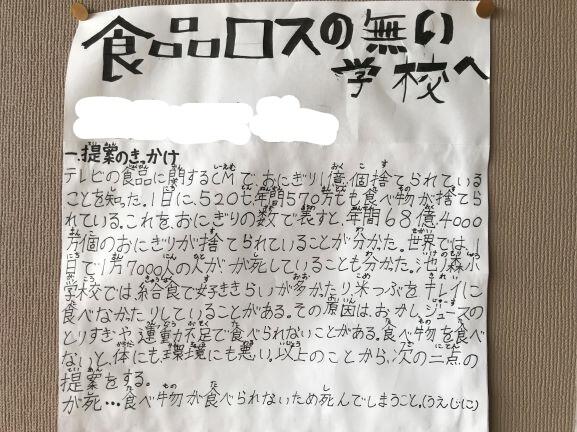 食品ロスの無い
学校へ
一.提案のきっかけ
テレビの食品に関するCMで、おにぎり1億個捨てられている
ことを知った。1日に、520t、年間570万tも食べ物が捨てら
れている。これを、おにぎりの数で表すと、年間68億4000
万個のおにぎりが捨てられていることが分かった。世界では、1
日で1万7000人の人が が死していることも分かった。池ノ森小
学校では、給食で好ききらいが多かたり米つぶをキレイに
食べなかたりしていることがある。その原因は、おかし、ジュースの
とりすぎや運動不足で食べられないことがある。食べ物を食べ
ないと、体にも、環境にも悪い。以上のことから、次の二点の
提案をする。
が死…食べ物が食べられないため死んでしまうこと。(うえじに)